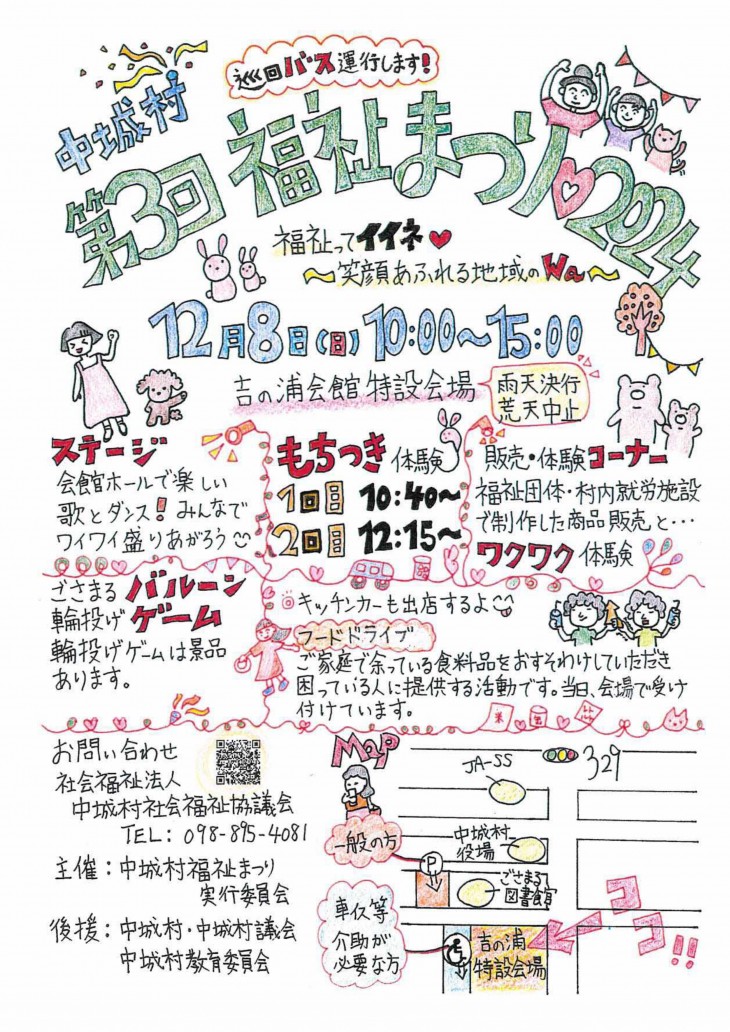 巡回バス運行します!
中城村
第3回福祉まつり♡2024
福祉ってイイネ♥
～笑顔あふれる地域のWa～
12月8日(日)10:00～15:00
吉の浦会館 特設会場
雨天決行
荒天中止
ステージ
会館ホールで楽しい
歌とダンス!みんなで
ワイワイ盛りあがろう
もちつき体験
1回目 10:40～
2回目 12:15～
販売・体験コーナー
福祉団体・村内就労施設
で制作した商品販売と…
ワクワク体験
ごさまるバルーン
輪投げゲーム
輪投げゲームは景品
あります。
◎キッチンカーも出店するよ
フードドライブ
ご家庭で余っている食料品をおすそわけしていただき
困っている人に提供する活動です。当日、会場で受け
付けています。
米
お問い合わせ
社会福祉法人
中城村社会福祉協議会
TEL: 098-895-4081
主催:中城村福祉まつり
実行委員会
後援:中城村・中城村議会
中城村教育委員会
Map
JA-SS
329
一般の方
中城村
役場
P
ごさまる
図書館
車イス等
介助が
必要な方
吉の浦
特設会場
ココ!!